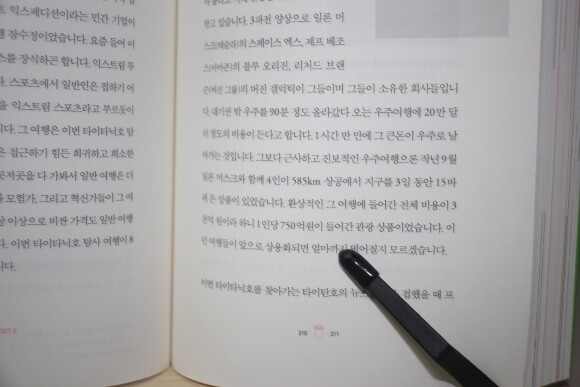 트 익스페디션이라는 민간 기업이
행 잠수정이었습니다. 요즘 들어 이
스를 장식하곤 합니다. 익스트림 투
다. 스포츠에서 일반인은 접하기 어
을 익스트림 스포츠라고 부르듯이
니다. 그 여행은 이번 타이타닉호 탐
은 접근하기 힘든 희귀하고 희소한
곳저곳을 다 가봐서 일반 여행은 더
모험가, 그리고 혁신가들이 그 여
당 이상으로 비싼 가격도 일반 여행
다. 이번 타이타닉호 탐사 여행이 8
니다.
하고 있습니다. 3파전 양상으로 일론 머
스크(테슬라)의 스페이스 엑스, 제프 베조
스(아마존)의 블루 오리진, 리처드 브랜
슨(버진 그룹)의 버진 갤럭틱이 그들이며 그들이 소유한 회사들입니
다. 대기권 밖 우주를 90분 정도 올라갔다 오는 우주여행에 20만 달
러 정도의 비용이 든다고 합니다. 1시간 반 만에 그 큰돈이 우주로 날
아가는 것입니다. 그보다 근사하고 진보적인 우주여행으론 작년 9월
일론 머스크와 함께 4인이 585km 상공에서 지구를 3일 동안 15바
퀴 돈 상품이 있었습니다. 환상적인 그 여행에 들어간 전체 비용이 3
천억 원이라 하니 1인당 750억원이 들어간 관광 상품이었습니다. 이
런 여행들이 앞으로 상용화되면 얼마까지 떨어질지 모르겠습니다.
이번 타이타닉호를 찾아가는 타이탄호의 뉴스 접했을 때 프
210 211